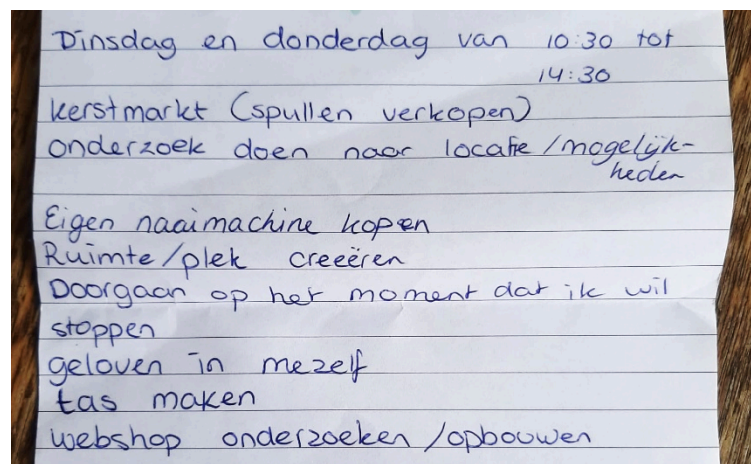 Dinsdag en donderdag van 10:30 tot
14:30
kerstmarkt (spullen verkopen)
onderzoek doen naar locatie/mogelijk-
heden
Eigen naaimachine kopen
Ruimte/plek creeëren
Doorgaan op het moment dat ik wil
stoppen
geloven in mezelf
tas maken
webshop onderzoeken/opbouwen